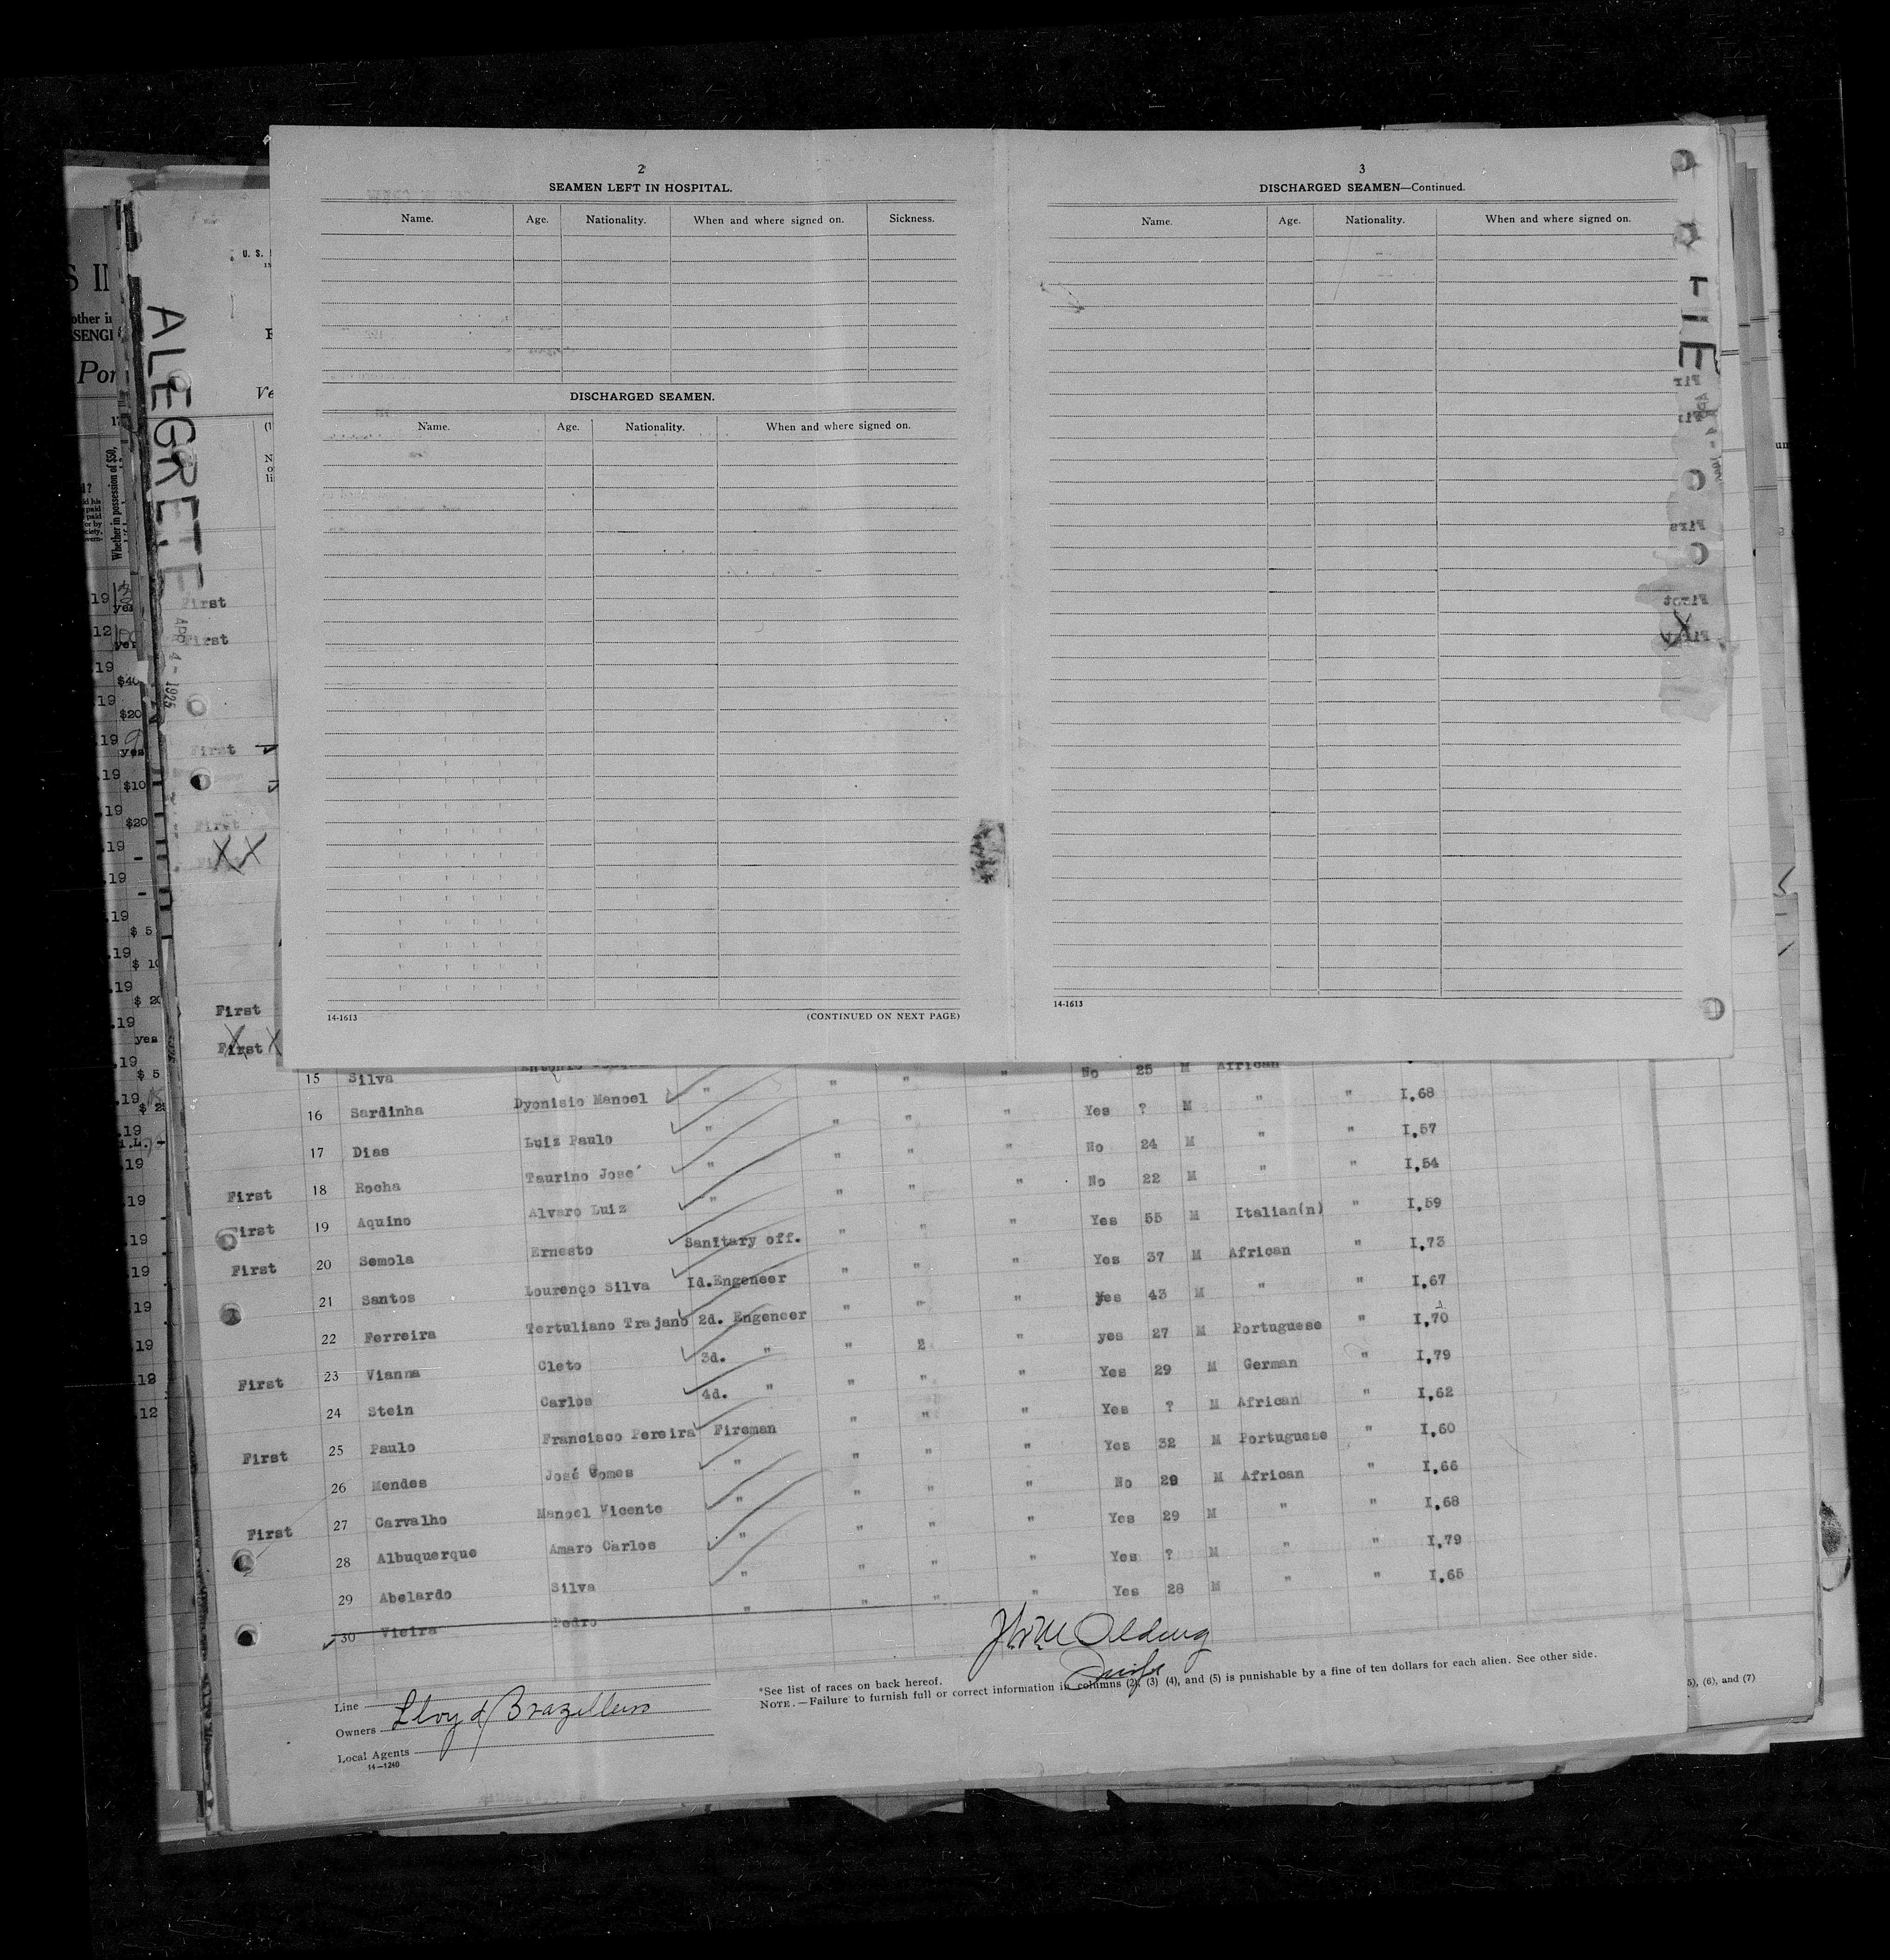 2
SEAMEN LEFT IN HOSPITAL.
Name. Age. Nationality. When and where signed on. Sickness.
DISCHARGED SEAMEN.
Name. Age. Nationality. When and where signed on.
14-1613 (CONTINUED ON NEXT PAGE)
3
DISCHARGED SEAMEN—Continued.
Name. Age. Nationality. When and where signed on.
14-1613
TIE
ALEGRETE
APR 4 - 1925
U. S.
Ve
First
First
First
First
First
First
15 Silva No 25 M African
16 Sardinha Dyonisio Manoel " " " " Yes ? M " " I,68
17 Dias Luiz Paulo " " " " No 24 M " " I,57
First 18 Rocha Taurino José " " " " No 22 M " " I,54
First 19 Aquino Alvaro Luiz " " " " Yes 55 M Italian(n) " I,59
First 20 Semola Ernesto Sanitary off. " " " Yes 37 M African " I,73
21 Santos Lourenço Silva Id.Engeneer " " " yes 43 M " " I,67
22 Ferreira Tertuliano Trajano 2d. Engeneer " " " yes 27 M Portuguese " I,70
First 23 Vianna Cleto 3d. " " 2 " Yes 29 M German " I,79
24 Stein Carlos 4d. " " " " Yes ? M African " I,62
First 25 Paulo Francisco Pereira Fireman " " " Yes 32 M Portuguese " I,60
26 Mendes José Gomes " " " " No 29 M African " I,66
First 27 Carvalho Manoel Vicente " " " " Yes 29 M " " I,68
28 Albuquerque Amaro Carlos " " " " Yes ? M " " I,79
29 Abelardo Silva " " " " Yes 28 M " " I,65
30 Vieira Pedro " " "
Line
Owners Lloyd Brazileiro
Local Agents
14—1240
*See list of races on back hereof.
NOTE.—Failure to furnish full or correct information in columns (2), (3) (4), and (5) is punishable by a fine of ten dollars for each alien. See other side.
5), (6), and (7)